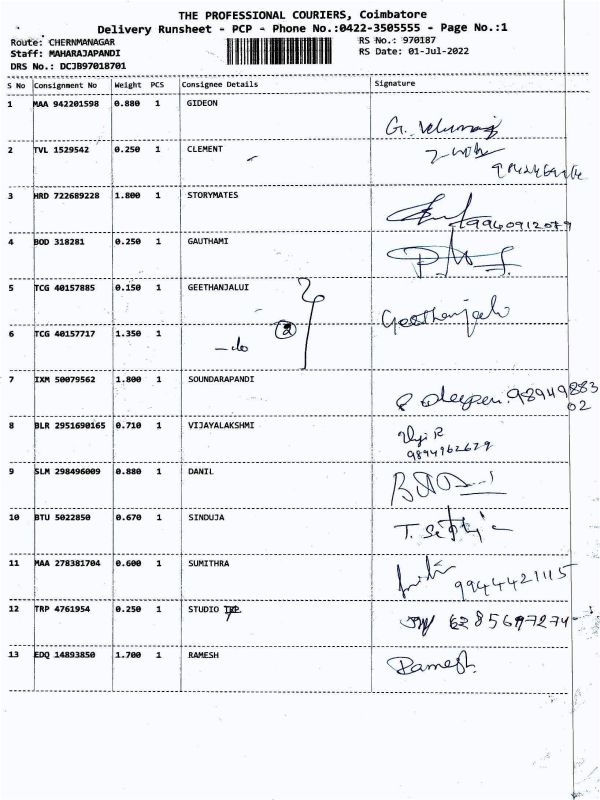 THE PROFESSIONAL COURIERS, Coimbatore
Delivery Runsheet - PCP - Phone No.:0422-3505555 - Page No.:1
Route: CHERNMANAGAR
RS No.: 970187
Staff: MAHARAJAPANDI
RS Date: 01-Jul-2022
DRS No.: DCJB97018701
S No Consignment No Weight PCS Consignee Details Signature
1 MAA 942201598 0.880 1 GIDEON
2 TVL 1529542 0.250 1 CLEMENT
3 HRD 722689228 1.800 1 STORYMATES
9940912079
4 BOD 318281 0.250 1 GAUTHAMI
5 TCG 40157885 0.150 1 GEETHANJALUI
Geethanjali
6 TCG 40157717 1.350 1
2
-do
7 IXM 50079562 1.800 1 SOUNDARAPANDI
98949883
02
8 BLR 2951690165 0.710 1 VIJAYALAKSHMI
Viji R
9894962629
9 SLM 298496009 0.880 1 DANIL
10 BTU 5022850 0.670 1 SINDUJA
11 MAA 278381704 0.600 1 SUMITHRA
9944421115
12 TRP 4761954 0.250 1 STUDIO
13 EDQ 14893850 1.700 1 RAMESH Ramesh